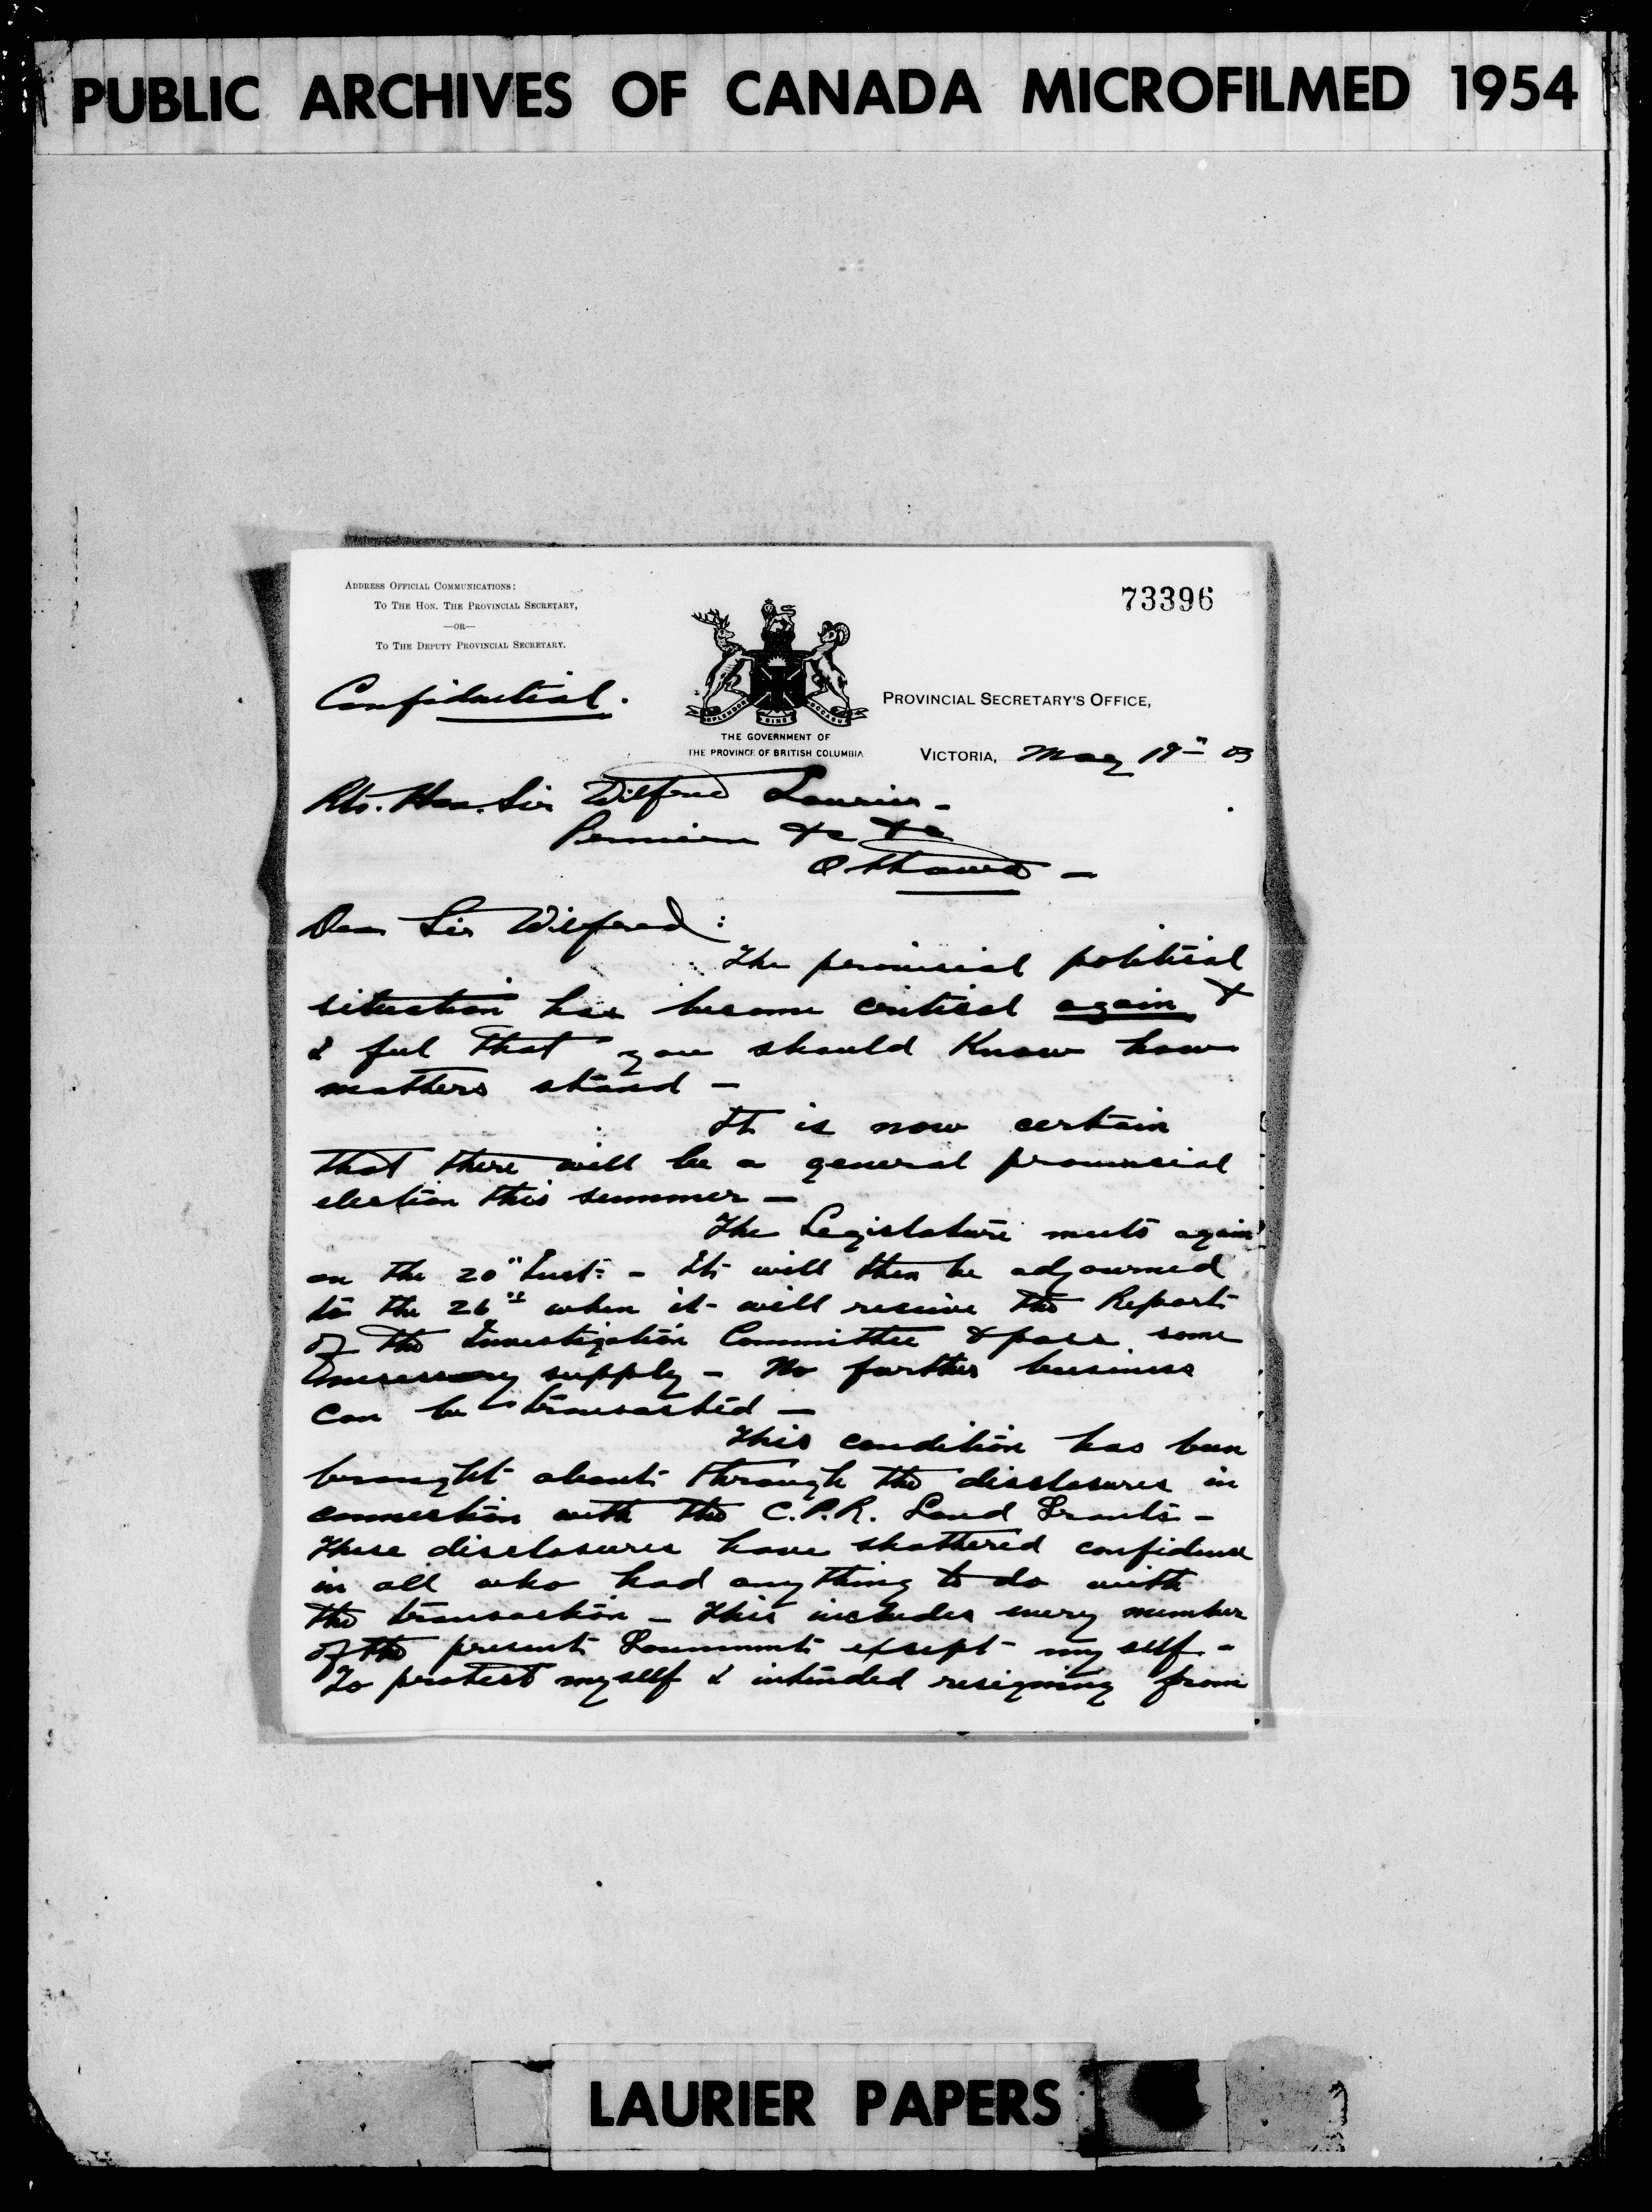 PUBLIC ARCHIVES OF CANADA MICROFILMED 1954
ADDRESS OFFICIAL COMMUNICATIONS:
TO THE HON. THE PROVINCIAL SECRETARY,
—OR—
TO THE DEPUTY PROVINCIAL SECRETARY.
73396
Confidential.
SPLENDOR SINE OCCASU
THE GOVERNMENT OF
THE PROVINCE OF BRITISH COLUMBIA
PROVINCIAL SECRETARY'S OFFICE,
VICTORIA, May 19th 03
Rto. Hon. Sir Wilfred Laurier -
Premier &c &c
Ottawa -
Dear Sir Wilfred:
The provincial political
situation has become critical again &
I feel that you should know how
matters stand -
It is now certain
that there will be a general provincial
election this summer -
The Legislature meets again
on the 20" Inst: - It will then be adjourned
to the 26th when it will receive the Report
of the Investigation Committee & pass some
necessary supply - No further business
can be transacted -
This condition has been
brought about through the disclosures in
connection with the C.P.R. Land Grants -
These disclosures have shattered confidence
in all who had anything to do with
the transaction - This includes every member
of the present Government except my self -
To protect myself I intended resigning from
LAURIER PAPERS